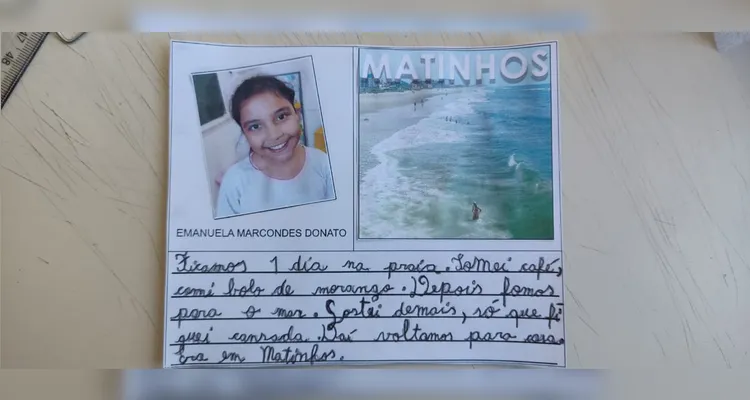 MATINHOS
EMANUELA MARCONDES DONATO
Ficamos 1 dia na praia. Tomei café,
comi bolo de morango. Depois fomos
para o mar. Gostei demais, só que fi
quei cansada. Daí voltamos para casa.
Era em Matinhos.
47
48